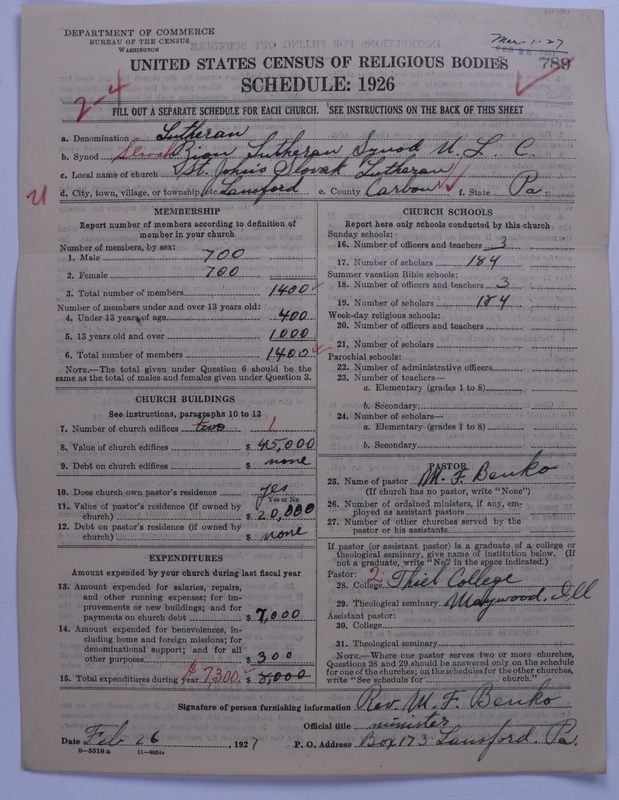 DEPARTMENT OF COMMERCE
BUREAU OF THE CENSUS
WASHINGTON
Mar-1-27
789
UNITED STATES CENSUS OF RELIGIOUS BODIES
SCHEDULE: 1926
2-4
FILL OUT A SEPARATE SCHEDULE FOR EACH CHURCH. SEE INSTRUCTIONS ON THE BACK OF THIS SHEET
a. Denomination Lutheran
b. Synod Slovak Zion Lutheran Synod U. L. C.
c. Local name of church St. John's Slovak Lutheran
d. City, town, village, or township, etc. Lansford e. County Carbon f. State Pa
MEMBERSHIP
Report number of members according to definition of member in your church
Number of members, by sex:
1. Male 700
2. Female 700
3. Total number of members 1400
Number of members under and over 13 years old:
4. Under 13 years of age 400
5. 13 years old and over 1000
6. Total number of members 1400
NOTE.—The total given under Question 6 should be the
same as the total of males and females given under Question 3.
CHURCH BUILDINGS
See instructions, paragraphs 10 to 12
7. Number of church edifices two 1
8. Value of church edifices $ 45,000
9. Debt on church edifices $ none
10. Does church own pastor's residence yes
Yes or No
11. Value of pastor's residence (if owned by
church) $ 20,000
12. Debt on pastor's residence (if owned by
church) $ none
EXPENDITURES
Amount expended by your church during last fiscal year
13. Amount expended for salaries, repairs,
and other running expenses; for im-
provements or new buildings; and for
payments on church debt $ 7,000
14. Amount expended for benevolences, in-
cluding home and foreign missions; for
denominational support; and for all
other purposes $ 300
15. Total expenditures during year $7300 $ 8,000
CHURCH SCHOOLS
Report here only schools conducted by this church
Sunday schools:
16. Number of officers and teachers 3
17. Number of scholars 184
Summer vacation Bible schools:
18. Number of officers and teachers 3
19. Number of scholars 184
Week-day religious schools:
20. Number of officers and teachers
21. Number of scholars
Parochial schools:
22. Number of administrative officers
23. Number of teachers—
a. Elementary (grades 1 to 8)
b. Secondary
24. Number of scholars—
a. Elementary (grades 1 to 8)
b. Secondary
PASTOR
25. Name of pastor M. F. Benko
(If church has no pastor, write "None")
26. Number of ordained ministers, if any, em-
ployed as assistant pastors
27. Number of other churches served by the
pastor or his assistants
If pastor (or assistant pastor) is a graduate of a college or
theological seminary, give name of institution below. (If
not a graduate, write "No" in the space indicated.)
Pastor: 2
28. College Thiel College
29. Theological seminary Maywood, Ill
Assistant pastor:
30. College
31. Theological seminary
NOTE.—Where one pastor serves two or more churches,
Questions 28 and 29 should be answered only on the schedule
for one of the churches; on the schedules for the other churches,
write "See schedule for church."
Signature of person furnishing information Rev. M. F. Benko
Official title minister
Date Feb 26, 1927 P. O. Address Box 173 Lansford. Pa.
8-5518a 11-9051a